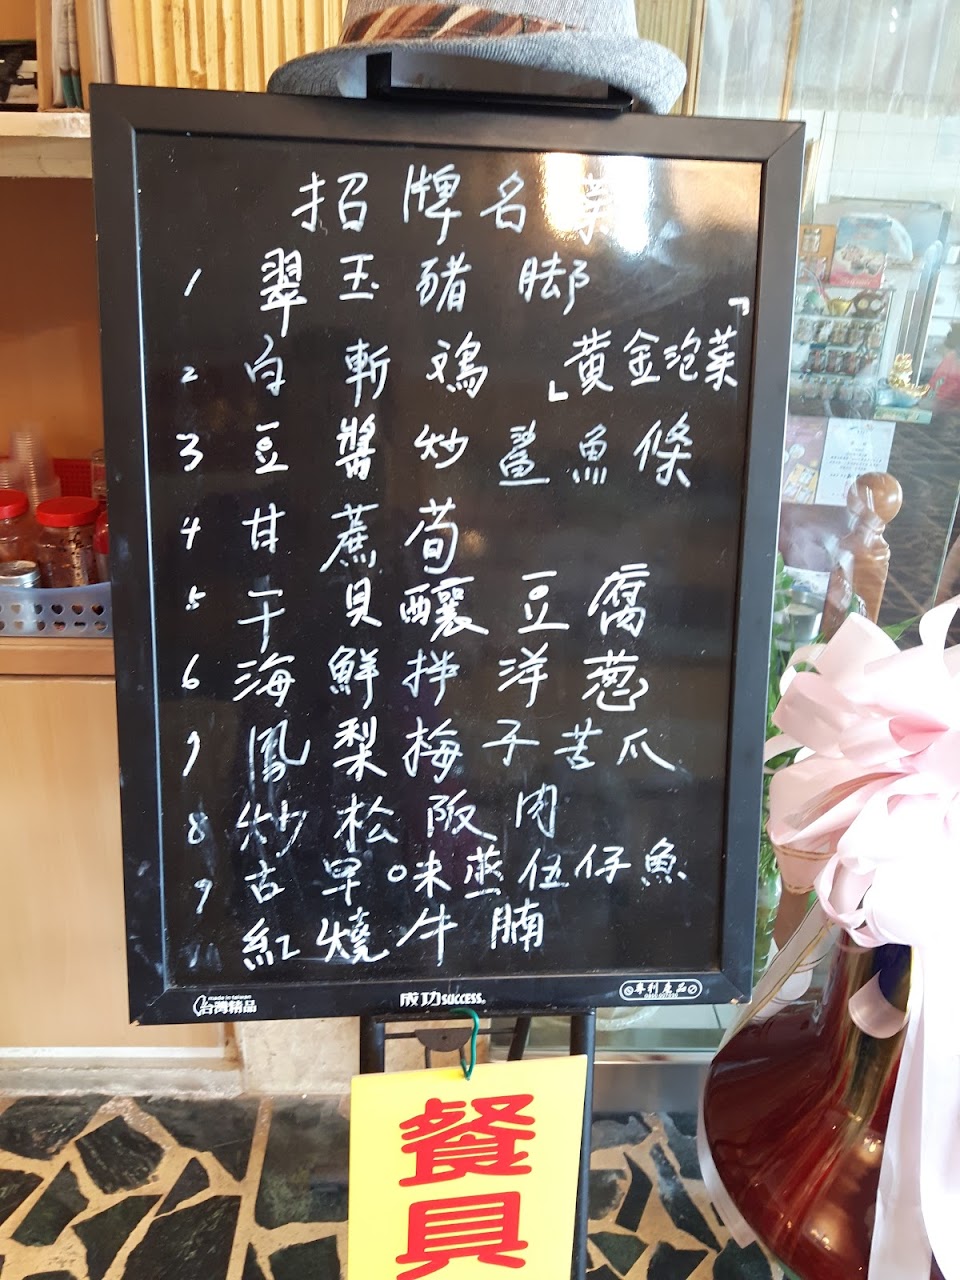 招牌名菜
1 翠玉豬脚
2 白斬鷄 「黃金泡菜」
3 豆醬炒鯊魚條
4 甘蔗荀
5 干貝釀豆腐
6 海鮮拌洋蔥
7 鳳梨梅子苦瓜
8 炒松阪肉
9 古早味蒸伍仔魚
10 紅燒牛腩
made in taiwan
台灣精品
成功 SUCCESS®
專利產品
餐具